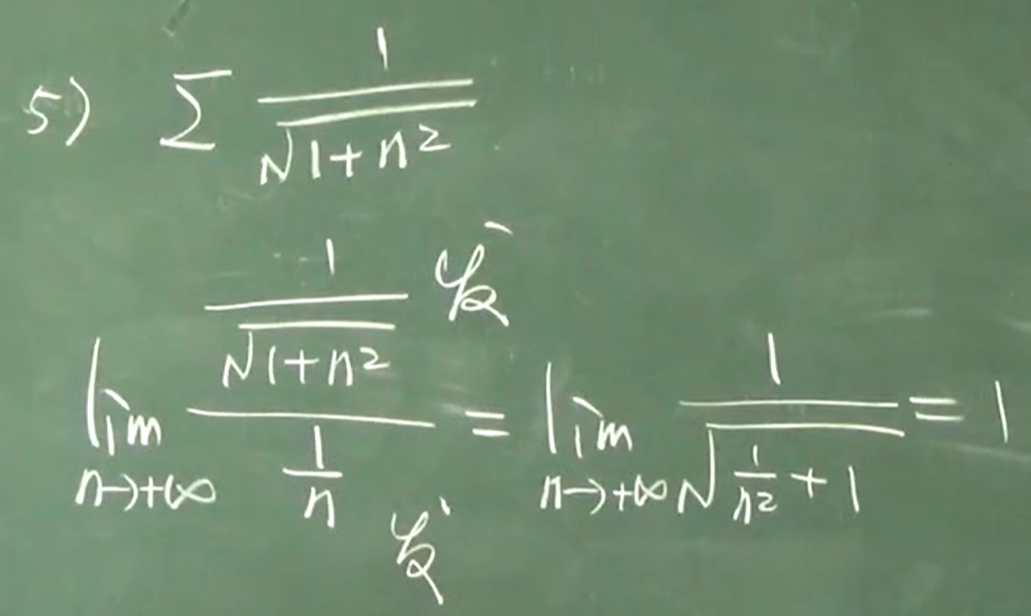 5) ∑ 1/√(1+n²)
lim n→+∞ (1/√(1+n²))/(1/n) = lim n→+∞ 1/√(1/n²+1) = 1